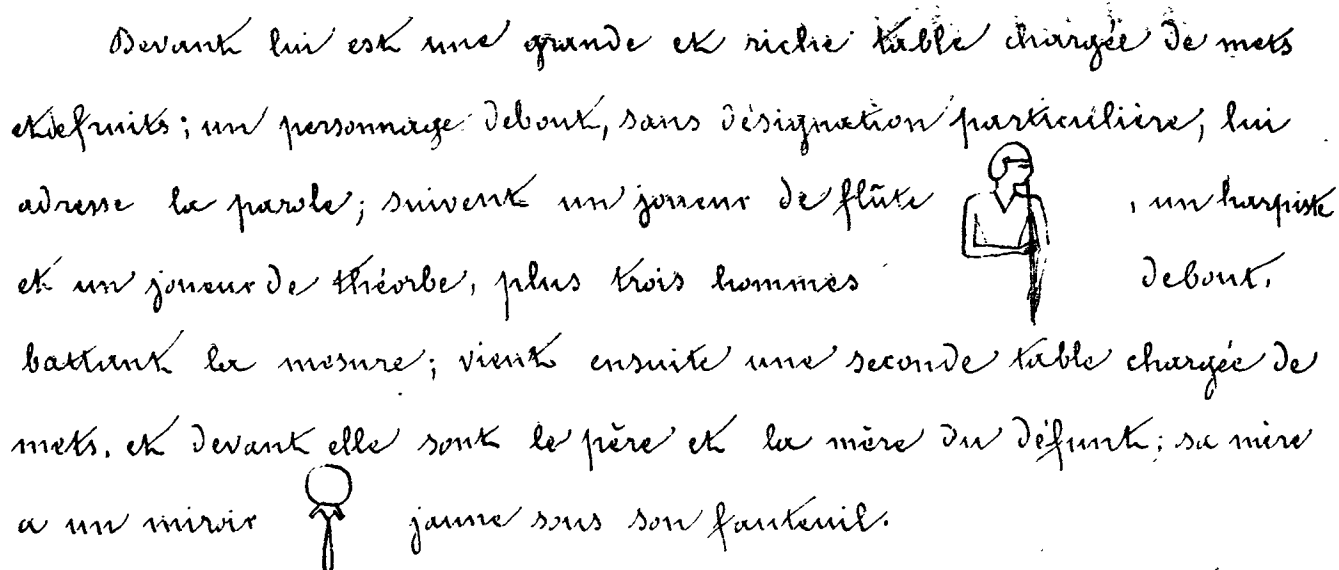 Devant lui est une grande et riche table chargée de mets
et de fruits; un personnage debout, sans désignation particulière, lui
adresse la parole; suivent un joueur de flûte , un harpiste
et un joueur de théorbe, plus trois hommes debout,
battant la mesure; vient ensuite une seconde table chargée de
mets, et devant elle sont le père et la mère du défunt; sa mère
a un miroir jaune sous son fauteuil.